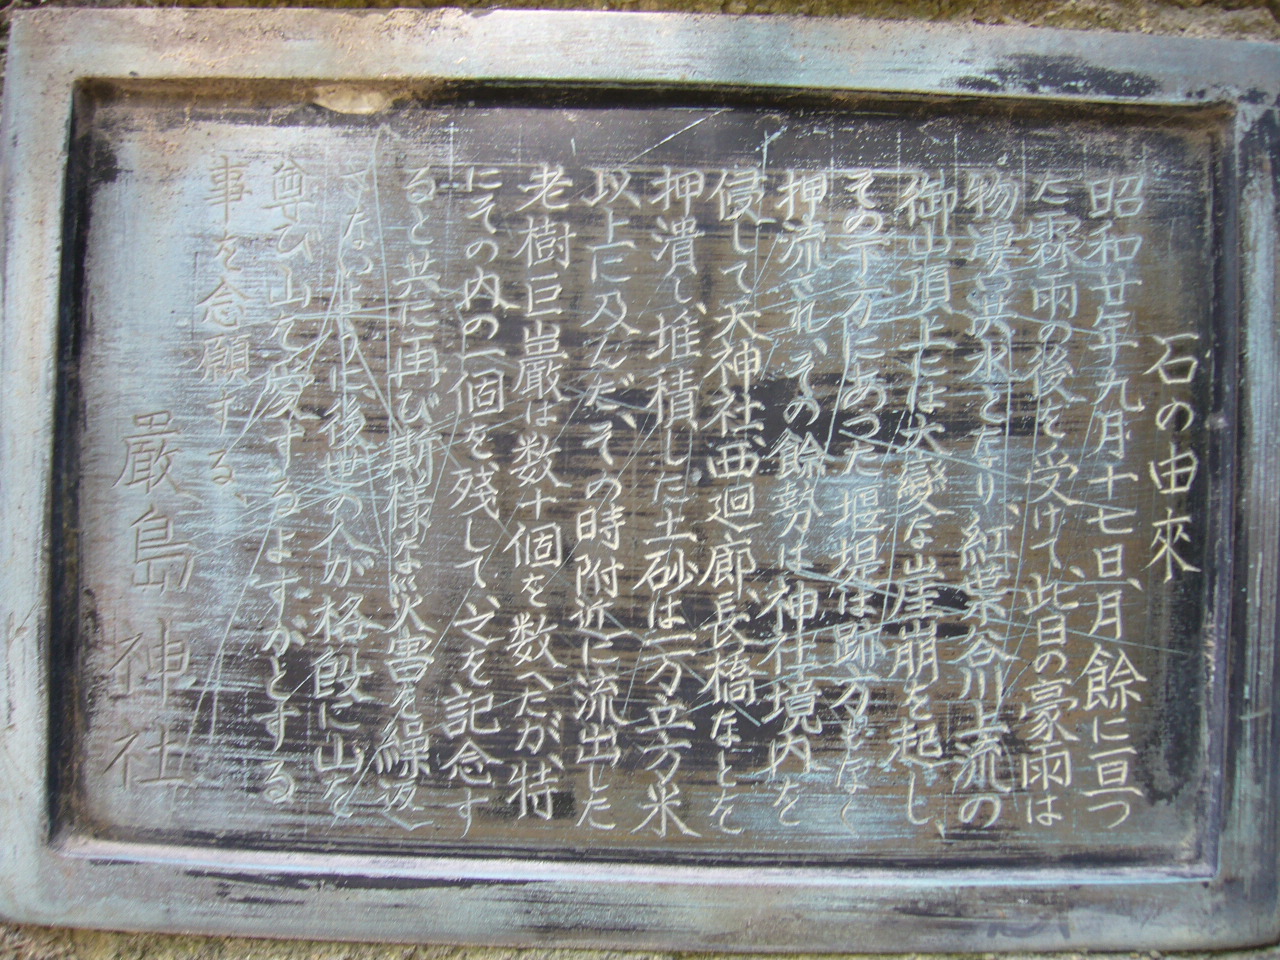 石の由來
昭和廿年九月十七日、月餘に亘つ
た霖雨の後を受けて、当日の豪雨は
物凄き洪水となり、紅葉谷川上流の
御山頂上には大變な崖崩を起し
その下方にあった堰堤は跡方もなく
押流され、その餘勢は神社境内を
侵して天神社、西廻廊、長橋などを
押潰し、堆積した土砂は一万立方米
以上に及んだ、その時附近に流出した
老樹巨巌は数十個を数へたが、特
にその内の一個を残して、之を記念す
ると共に再び斯様な災害を繰返
さない様に、後世の人が格段に山を
尊び山を愛するよすがとする
事を念願する、
嚴島神社